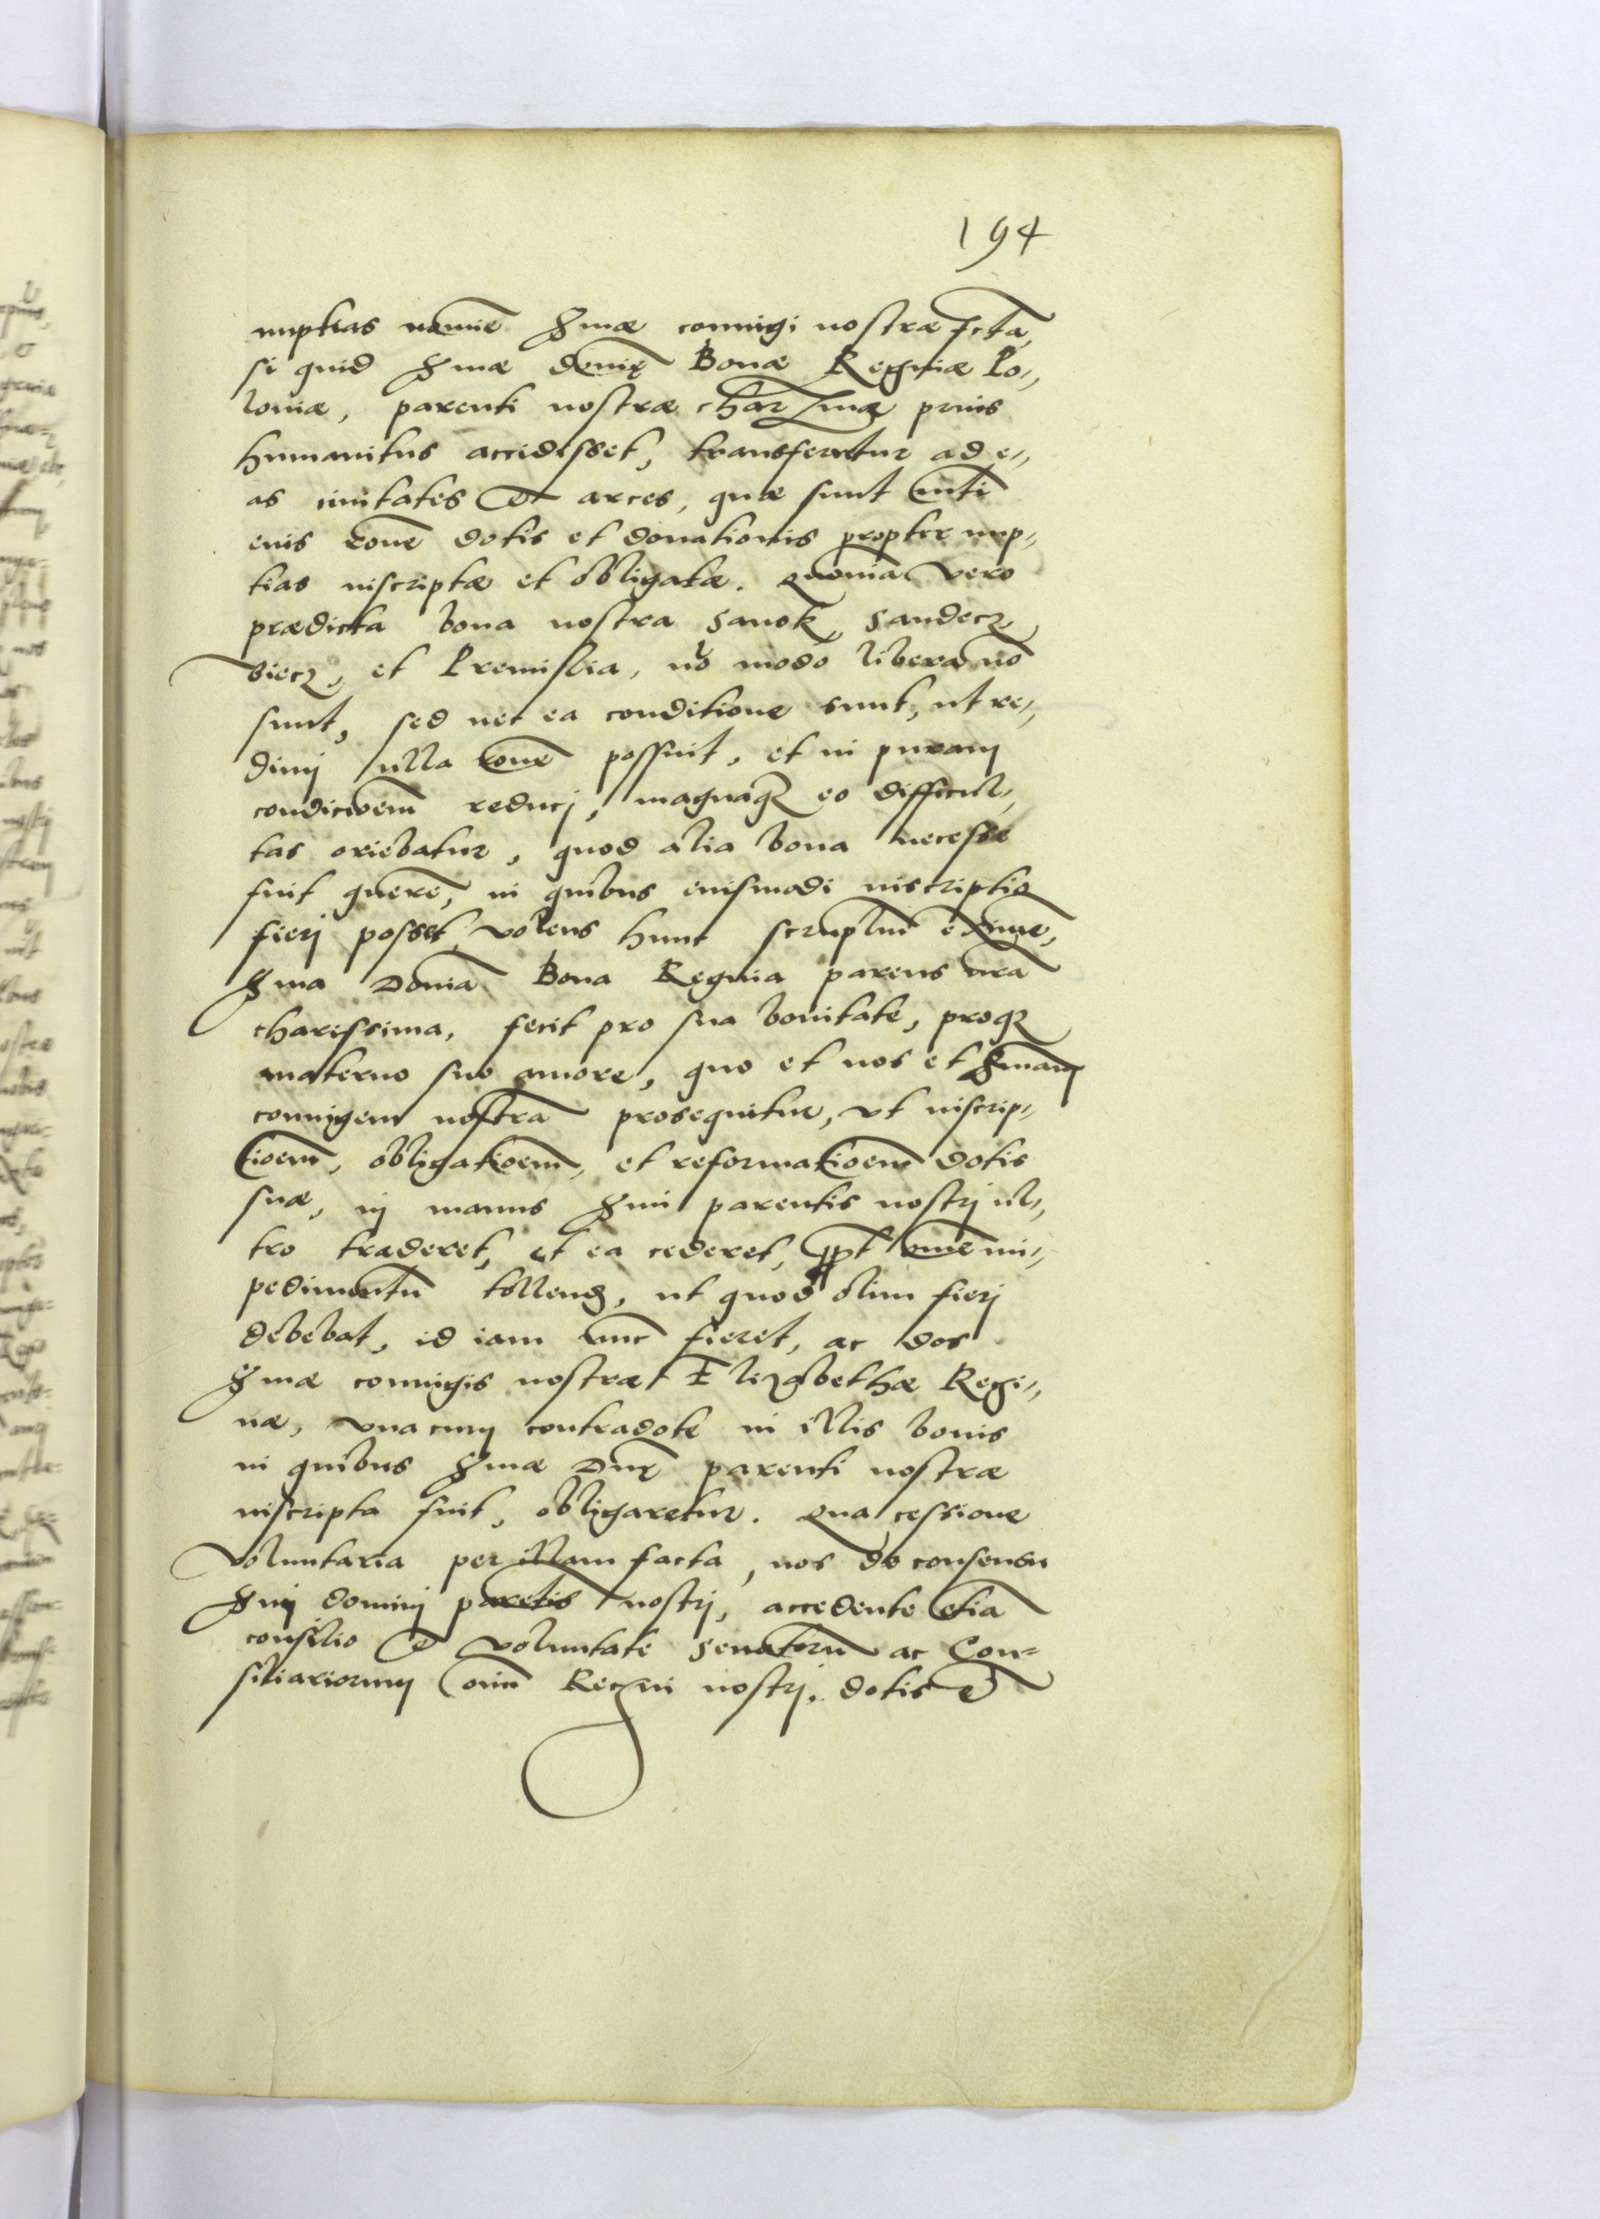 194
nuptias nomine Smae coniugi nostrae fcta,
si quid Smae domine Bonae Reginae Po-
loniae, parenti nostrae charmae prius
humanitus accidisset, transferretur ad e-
as civitates et arces, quae sunt
eius rone dotis et donationis propter nup-
tias inscriptae et obligatae. Quonia vero
praedicta bona nostra Sanok, Sandecz,
Biecz, et Premislia, no modo libera no
sunt, sed nec ea conditione sunt, ut re-
dimi ulla rone possint, et in puram
condicioem reduci, magnaq eo difficul-
tas oriebatur, quod alia bona necesse
fuit querere, in quibus eiusmodi inscriptio
fieri posset, volens hunc scruplum eximere,
Sma Domina Bona Regina parens nra
charissima, fecit pro sua bonitate, proq
materno suo amore, quo et nos et Smam
coniugem nostra prosequitur, ut inscrip-
tioem, obligatioem, et reformatioem dotis
suae, in manus Smi parentis nostri ul-
tro traderet, et ea cederet, ppt omne im-
pedimentu tollend, ut quod olim fieri
debebat, id iam nunc fieret, ac dos
Smae coniugis nostrae Elizabethae Regi-
nae, una cum contradote in illis bonis
in quibus Smae Dne parenti nostrae
inscripta fuit, obligaretur. Qua cessione
voluntaria per illam facta, nos de consensu
Smi domini paretis nostri, accedente etia
consilio et voluntate Senatoru ac Con-
siliariorum oim Regni nostri, dotis et